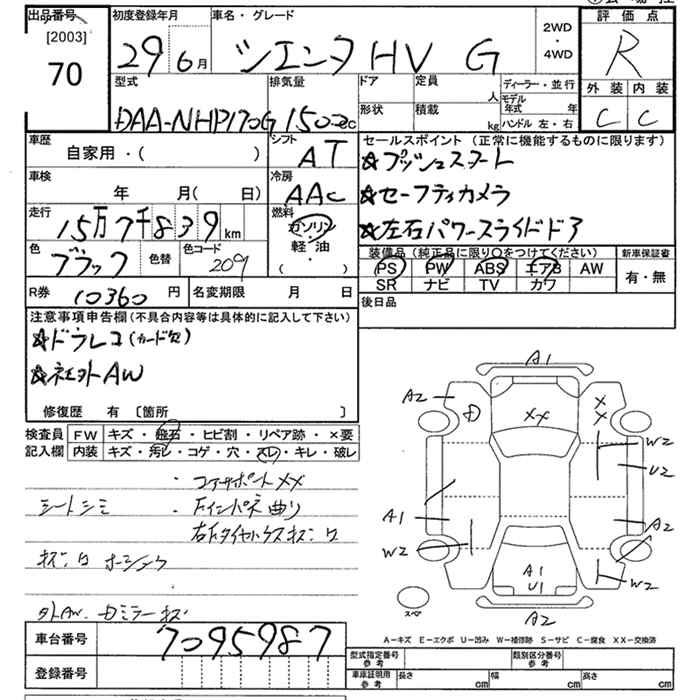 出品番号 初度登録年月 車名・グレード 2WD・4WD 評価点
[2003]
70 29年6月 シエンタ HV G R
型式 排気量 ドア 定員 人 ディーラー・並行 外装 内装
DAA-NHP170G 1500cc 形状 積載 kg モデル年式 年 ハンドル 左・右 C C
車歴 自家用・( ) シフト AT セールスポイント (正常に機能するものに限ります)
☆プッシュスタート
車検 年 月( 日) 冷房 AAC ☆セーフティカメラ
走行 15万7千839km 燃料 ガソリン・軽油・( ) ☆左右パワースライドドア
色 ブラック 色替 色コード 209 装備品 (純正品に限り○をつけてください) 新車保証書
PS PW ABS エアB AW 有・無
SR ナビ TV カワ
R券 10360円 名変期限 月 日 後日品
注意事項申告欄(不具合内容等は具体的に記入して下さい)
☆ドラレコ(カード欠)
☆社外AW
修復歴 有 〔箇所 〕
検査員記入欄 FW キズ・飛石・ヒビ割・リペア跡・×要
内装 キズ・汚レ・コゲ・穴・スレ・キレ・破レ
・コアサポートXX
シートシミ ・Fインパネ曲り
外AW. ミラーキズ
A1
A2 XX X X
W2
U2
A1 A2
W2
A1 W2
U1
スペ A2
A-キズ E-エクボ U-凹み W-補修跡 S-サビ C-腐食 XX-交換済
車台番号 7095987
登録番号
型式指定番号 参考 類別区分番号 参考
車庫証明用 参考 長さ cm 幅 cm 高さ cm